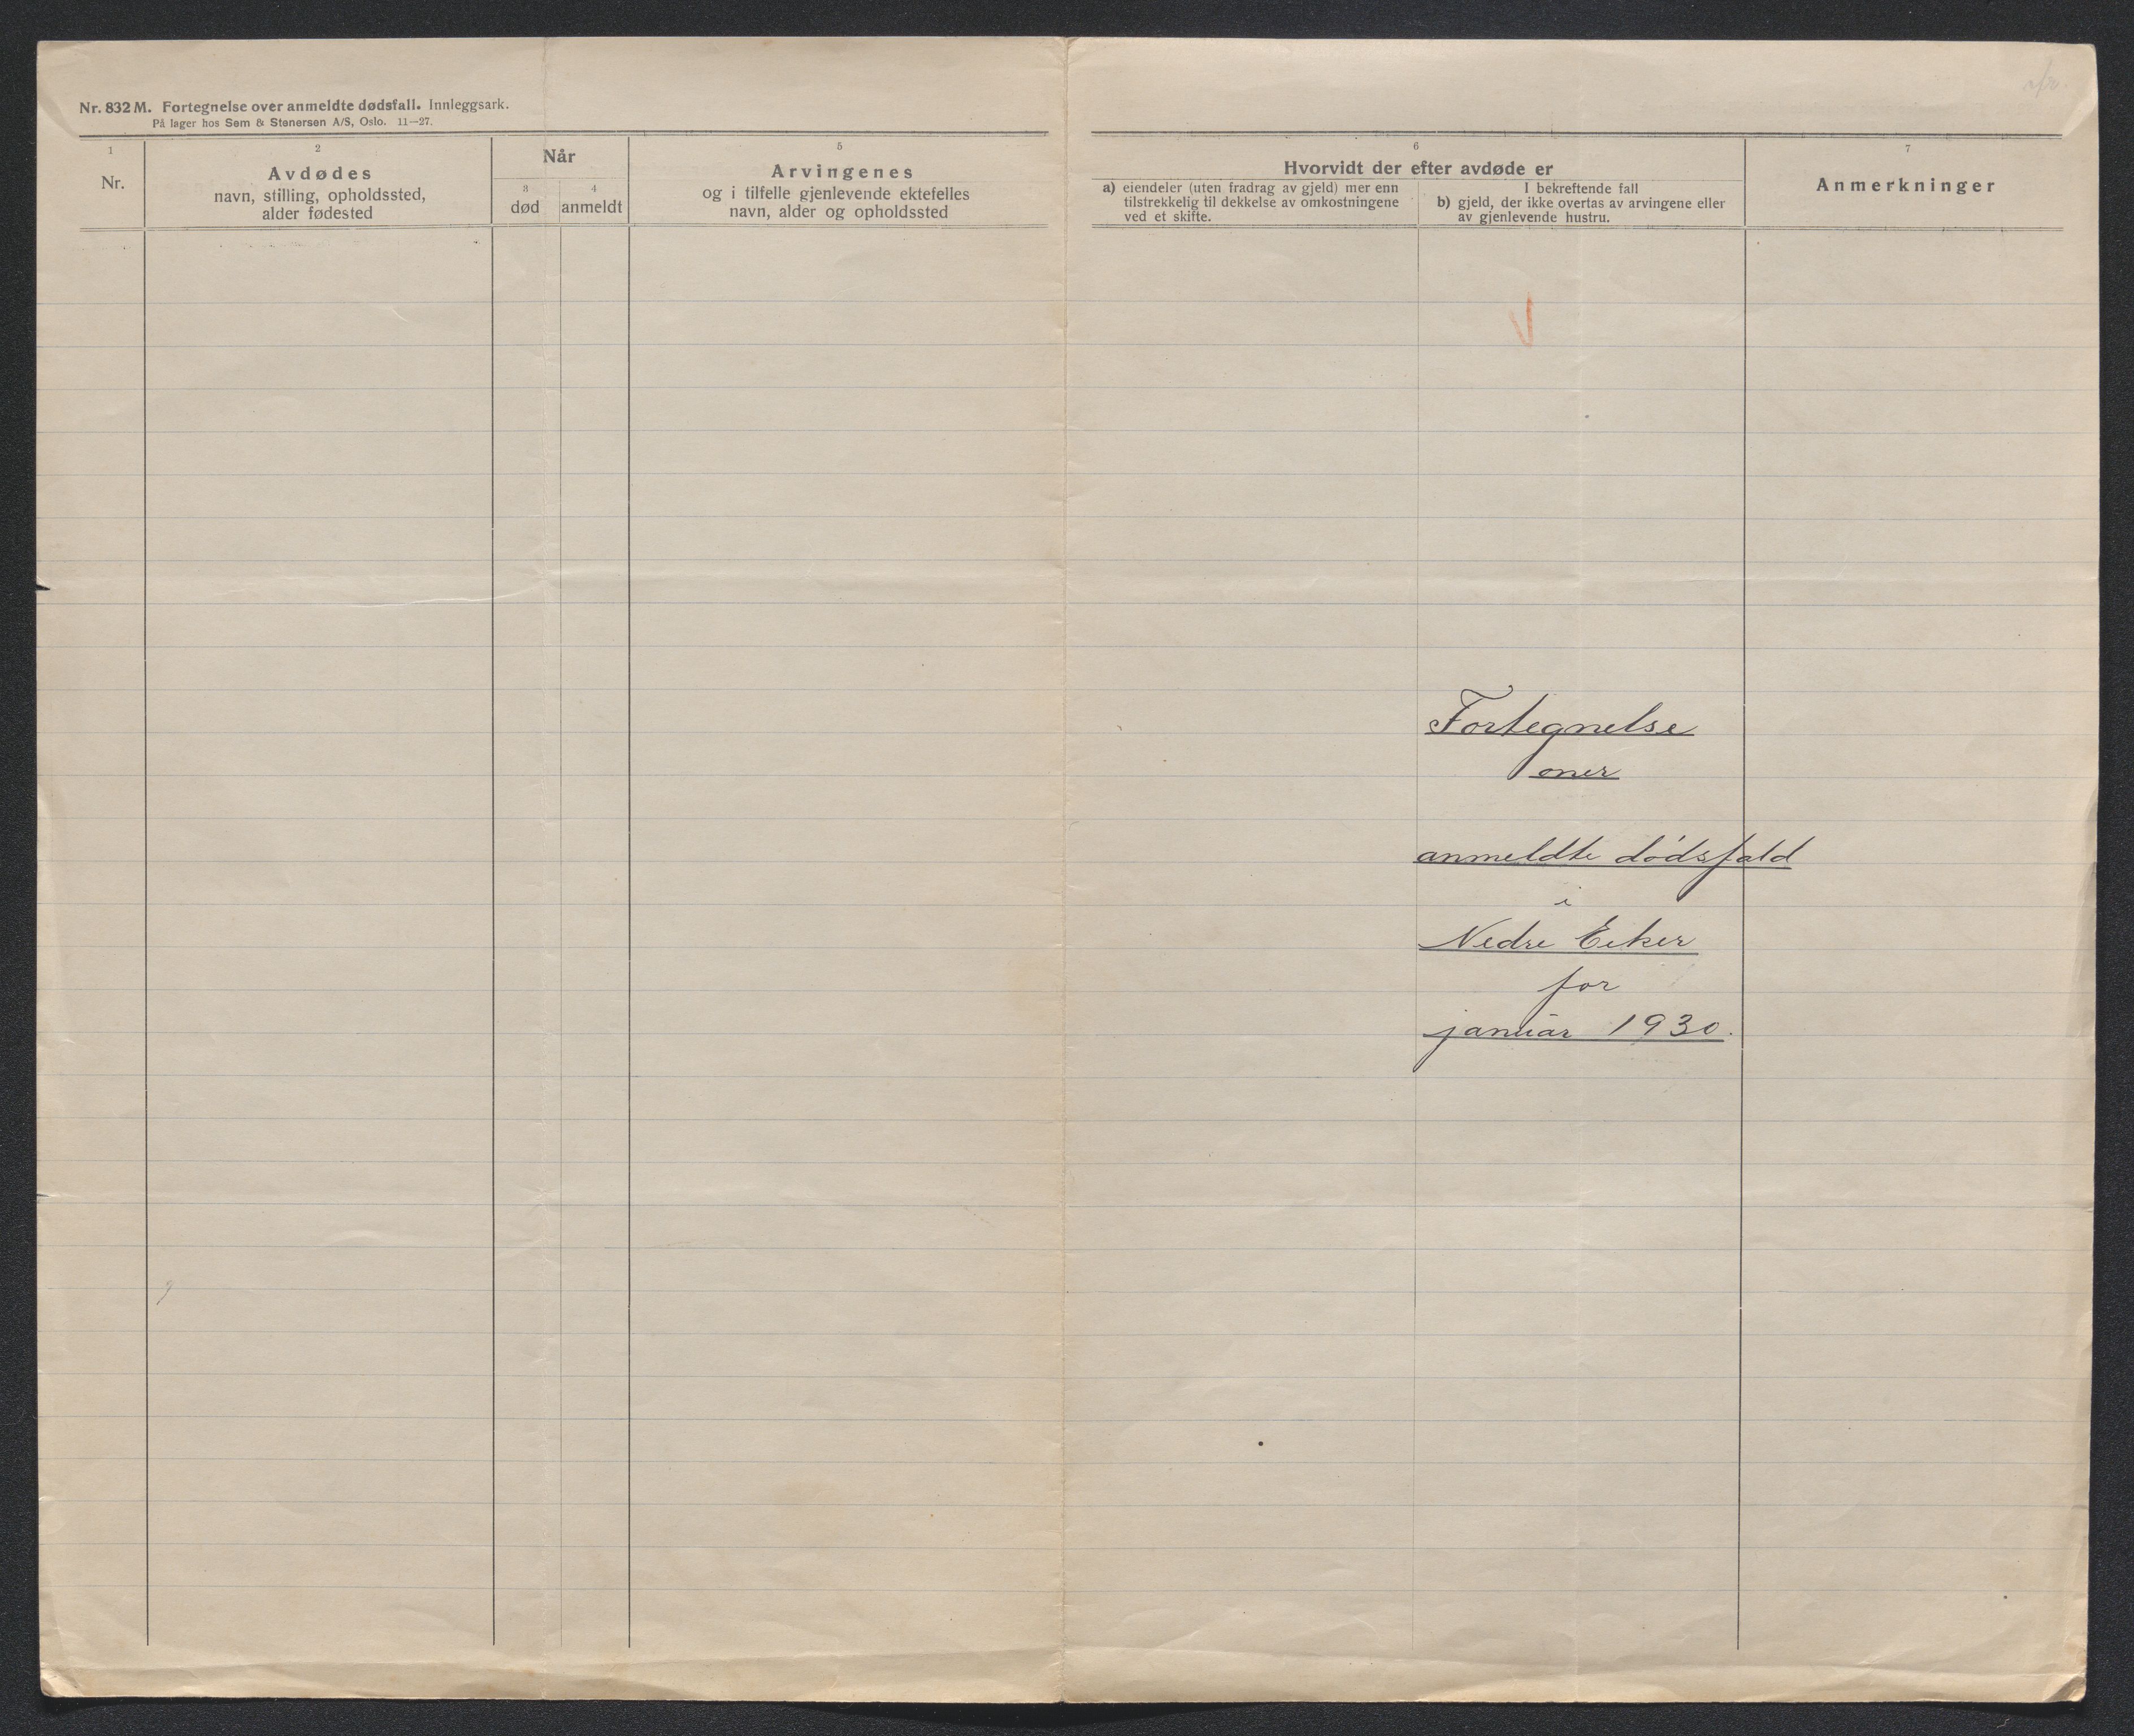 Nr. 832 M. Fortegnelse over anmeldte dødsfall. Innleggsark.
På lager hos Sem & Stenersen A/S, Oslo. 11—27.
1
Nr.
2
Avdødes
navn, stilling, opholdssted,
alder fødested
Når
3
død
4
anmeldt
5
Arvingenes
og i tilfelle gjenlevende ektefelles
navn, alder og opholdssted
6
Hvorvidt der efter avdøde er
a) eiendeler (uten fradrag av gjeld) mer enn
tilstrekkelig til dekkelse av omkostningene
ved et skifte.
I bekreftende fall
b) gjeld, der ikke overtas av arvingene eller
av gjenlevende hustru.
7
Anmerkninger
Fortegnelse
over
anmeldte dødsfald
i
Nedre Eiker
for
januar 1930.